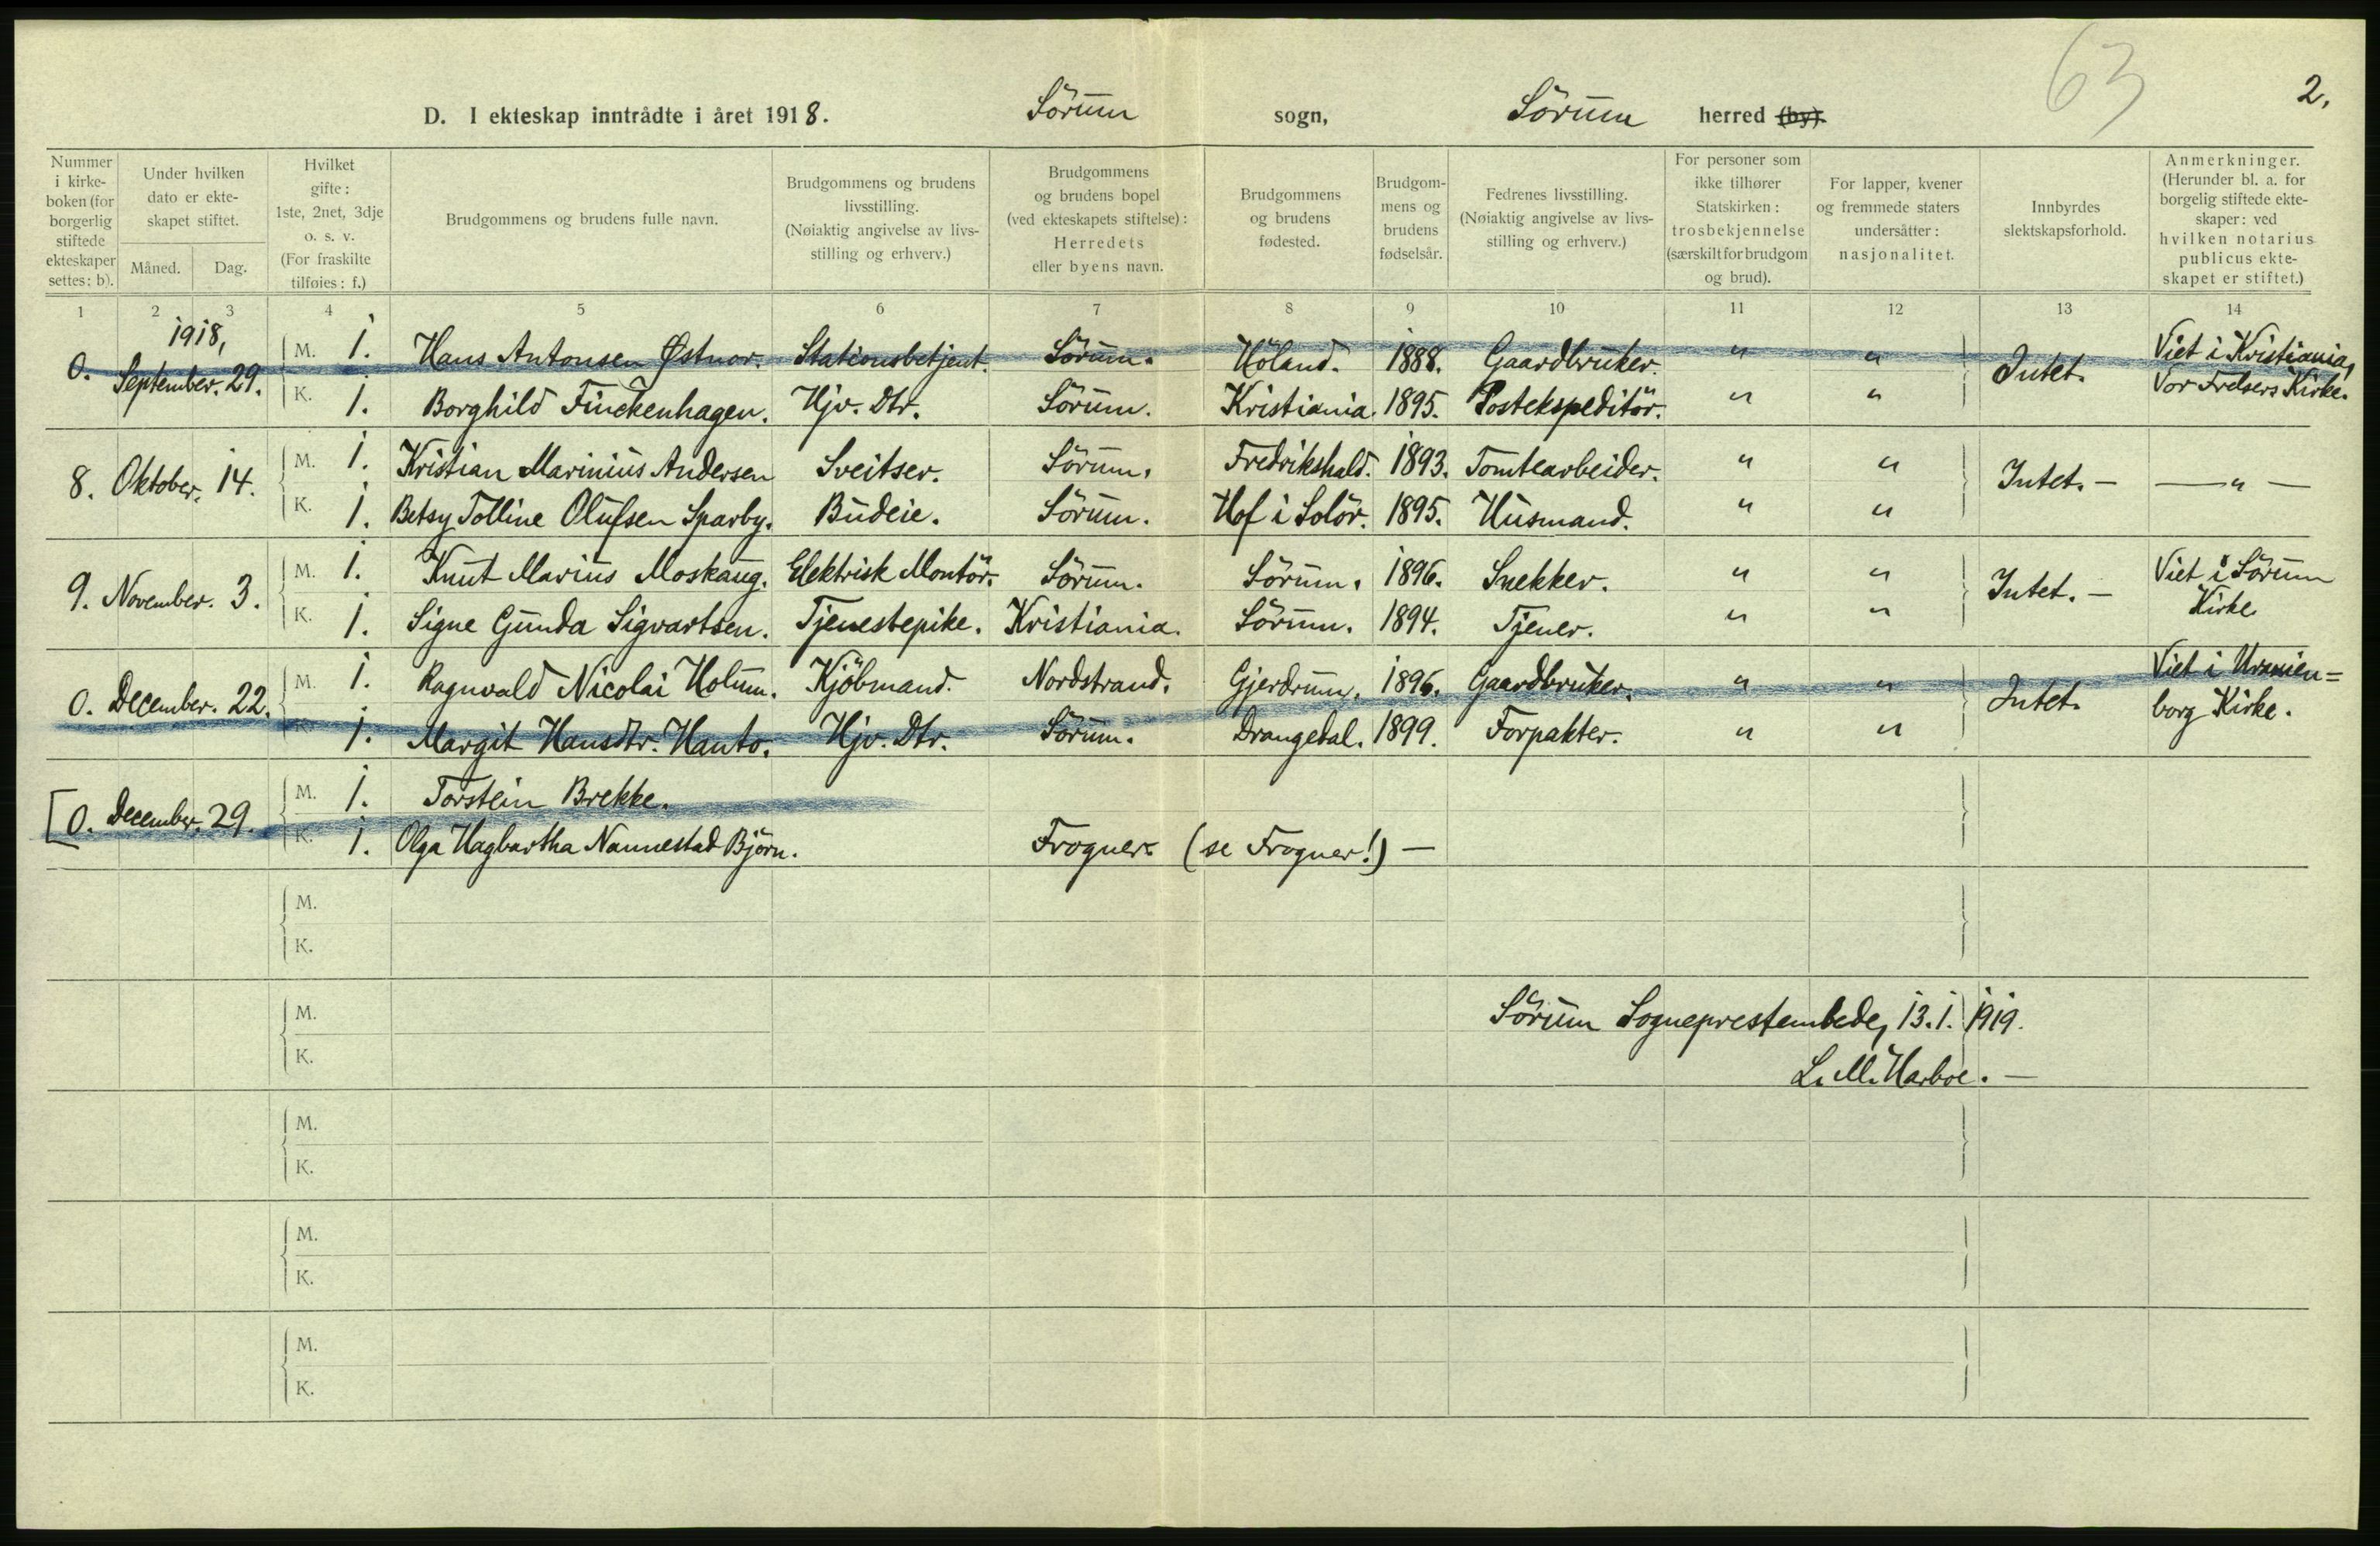 63
2.
D. I ekteskap inntrådte i året 1918. Sörum sogn, Sörum herred (by).
Nummer i kirke-boken (for borgerlig stiftede ekteskaper settes: b).
Under hvilken dato er ekte-skapet stiftet.
Måned. Dag.
Hvilket gifte: 1ste, 2net, 3dje o. s. v. (For fraskilte tilføies: f.)
Brudgommens og brudens fulle navn.
Brudgommens og brudens livsstilling. (Nøiaktig angivelse av livs-stilling og erhverv.)
Brudgommens og brudens bopel (ved ekteskapets stiftelse): Herredets eller byens navn.
Brudgommens og brudens fødested.
Brudgom-mens og brudens fødselsår.
Fedrenes livsstilling. (Nøiaktig angivelse av livs-stilling og erhverv.)
For personer som ikke tilhører Statskirken: trosbekjennelse (særskilt for brudgom og brud).
For lapper, kvener og fremmede staters undersåtter: nasjonalitet.
Innbyrdes slektskapsforhold.
Anmerkninger. (Herunder bl. a. for borgelig stiftede ekte-skaper: ved hvilken notarius publicus ekte-skapet er stiftet.)
1 2 3 4 5 6 7 8 9 10 11 12 13 14
1918,
0. September. 29. M. 1. Hans Antonsen Østnor. Stationsbetjent. Sörum. Höland. 1888. Gaardbruker. " " Intet. Viet i Kristiania,
K. 1. Borghild Finckenhagen. Hjv. Dtr. Sörum. Kristiania. 1895. Postekspeditör. " " Vor Frelsers Kirke.
8. Oktober. 14. M. 1. Kristian Marinius Andersen Sveitser. Sörum. Fredrikshald. 1893. Tomtearbeider. " " Intet. — — " —
K. 1. Betsy Tolline Olufsen Sparby. Budeie. Sörum. Hof i Solör. 1895. Husmand. " "
9. November. 3. M. 1. Knut Marius Moskaug. Elektrisk Montör. Sörum. Sörum. 1896. Snekker. " " Intet. — Viet i Sörum
K. 1. Signe Gunda Sigvartsen. Tjenestepike. Kristiania. Sörum. 1894. Tjener. " " Kirke
0. December. 22. M. 1. Ragnvald Nicolai Holum. Kjöbmand. Nordstrand. Gjerdrum. 1896. Gaardbruker. " " Intet. Viet i Uranien=
K. 1. Margit Hansdtr. Hanto. Hjv. Dtr. Sörum. Drangedal. 1899. Forpakter. " " borg Kirke.
[0. December. 29. M. 1. Torstein Brekke.
K. 1. Olga Hagbartha Nannestad Björn. Frogner. (se Frogner!) —
M.
K.
M. Sörum Sogneprestembede, 13.1. 1919.
K. L. M. Harboe. —
M.
K.
M.
K.
M.
K.